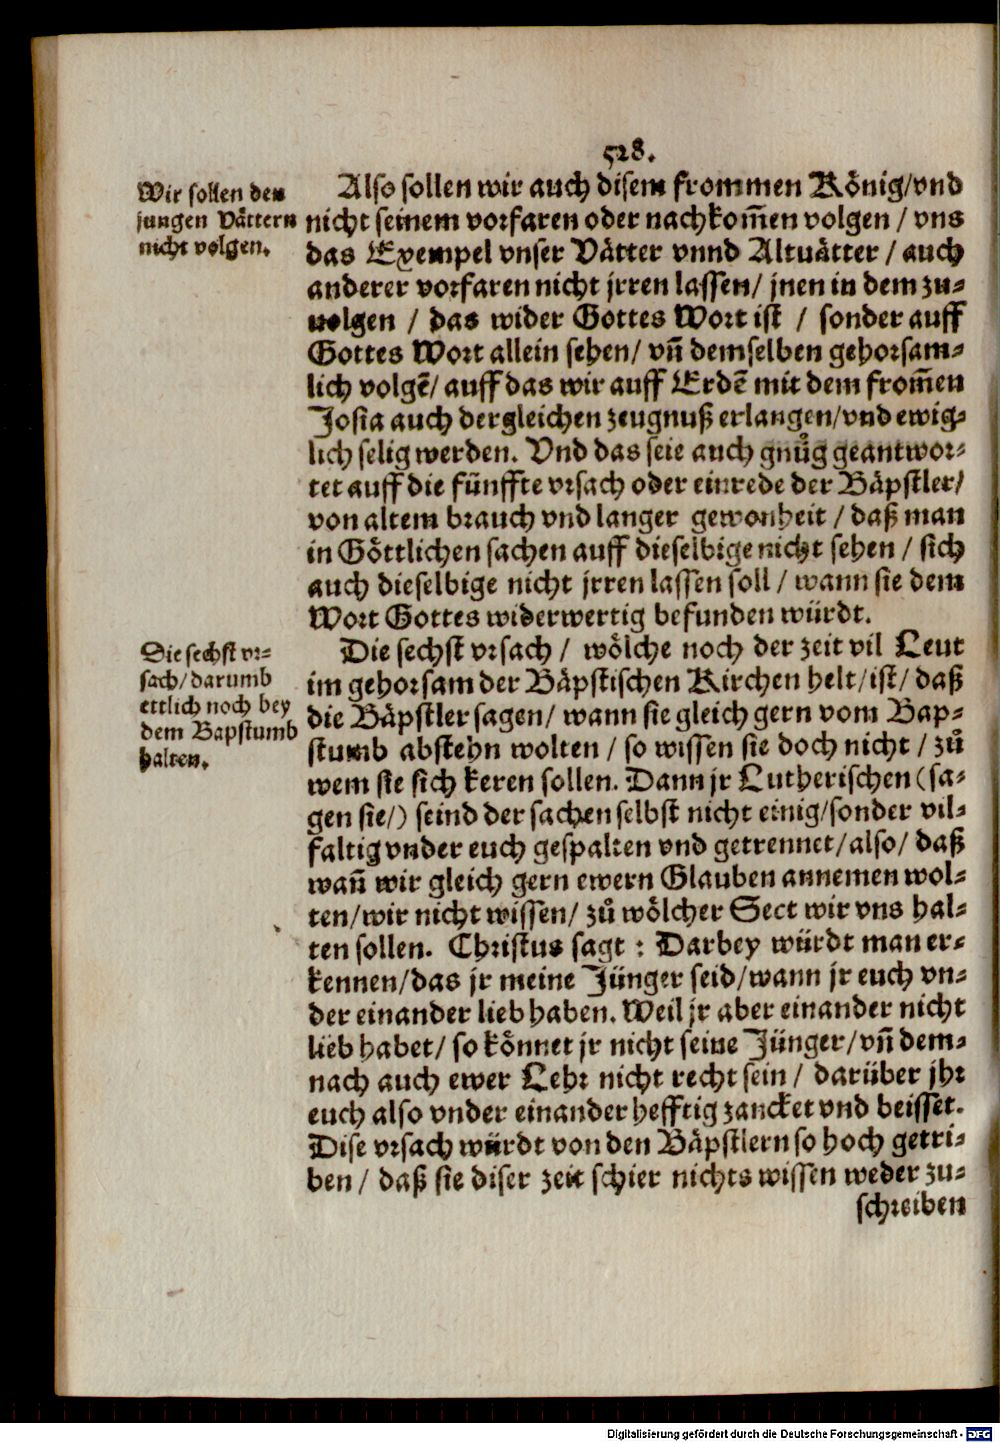 528.
Wir sollen den
jungen Vättern
nicht volgen.
Also sollen wir auch disem frommen König/vnd
nicht seinem vorfaren oder nachkom̃en volgen / vns
das Exempel vnser Vätter vnnd Altuätter / auch
anderer vorfaren nicht jrren lassen/ jnen in dem zu-
uolgen / das wider Gottes Wort ist / sonder auff
Gottes Wort allein sehen/ vñ demselben gehorsam-
lich volgẽ/ auff das wir auff Erdẽ mit dem from̃en
Josia auch dergleichen zeugnuß erlangen/vnd ewig-
lich selig werden. Vnd das seie auch gnůg geantwor-
tet auff die fünffte vrsach oder einrede der Bäpstler/
von altem brauch vnd langer gewonheit / daß man
in Göttlichen sachen auff dieselbige nicht sehen / sich
auch dieselbige nicht jrren lassen soll / wann sie dem
Wort Gottes widerwertig befunden würdt.
Die sechst vr-
sach/ darumb
ettlich noch bey
dem Bapstumb
halten.
Die sechst vrsach / wölche noch der zeit vil Leut
im gehorsam der Bäpstischen Kirchen helt/ist/ daß
die Bäpstler sagen/ wann sie gleich gern vom Bap-
stumb abstehn wolten / so wissen sie doch nicht / zů
wem sie sich keren sollen. Dann jr Lutherischen (sa-
gen sie/) seind der sachen selbst nicht einig/sonder vil-
faltig vnder euch gespalten vnd getrennet/also/ daß
wañ wir gleich gern ewern Glauben annemen wol-
ten/wir nicht wissen/ zů wölcher Sect wir vns hal-
ten sollen. Christus sagt : Darbey würdt man er-
kennen/das jr meine Jünger seid/wann jr euch vn-
der einander lieb haben. Weil jr aber einander nicht
lieb habet/ so könnet jr nicht seine Jünger/vñ dem-
nach auch ewer Lehr nicht recht sein / darüber jhr
euch also vnder einander hefftig zancket vnd beisset.
Dise vrsach würdt von den Bäpstlern so hoch getri-
ben / daß sie diser zeit schier nichts wissen weder zu-
schreiben
Digitalisierung gefördert durch die Deutsche Forschungsgemeinschaft - DFG